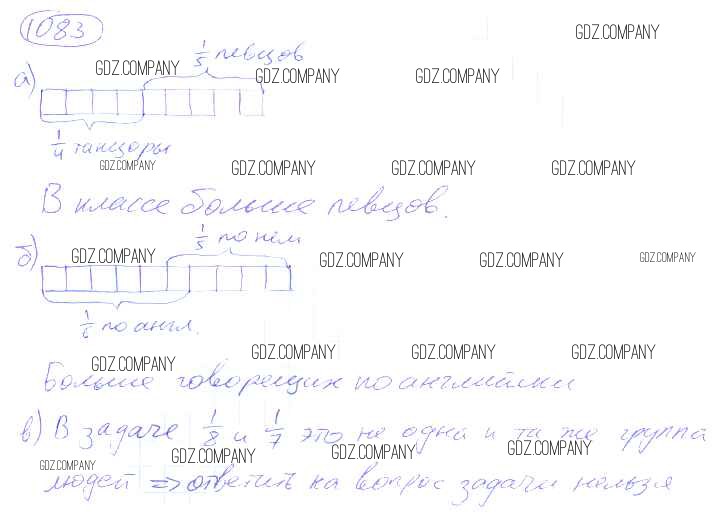 1083
GDZ.COMPANY
1/5 певцов
а)
GDZ.COMPANY GDZ.COMPANY GDZ.COMPANY
1/4 танцоры
GDZ.COMPANY GDZ.COMPANY GDZ.COMPANY GDZ.COMPANY
В классе больше певцов.
1/5 по нем
б)
GDZ.COMPANY GDZ.COMPANY GDZ.COMPANY GDZ.COMPANY
1/6 по англ.
GDZ.COMPANY GDZ.COMPANY GDZ.COMPANY GDZ.COMPANY
Больше говорещих по английски
в) В задаче 1/8 и 1/7 это не одна и та же группа
GDZ.COMPANY GDZ.COMPANY GDZ.COMPANY GDZ.COMPANY
людей => ответить на вопрос задачи нельзя